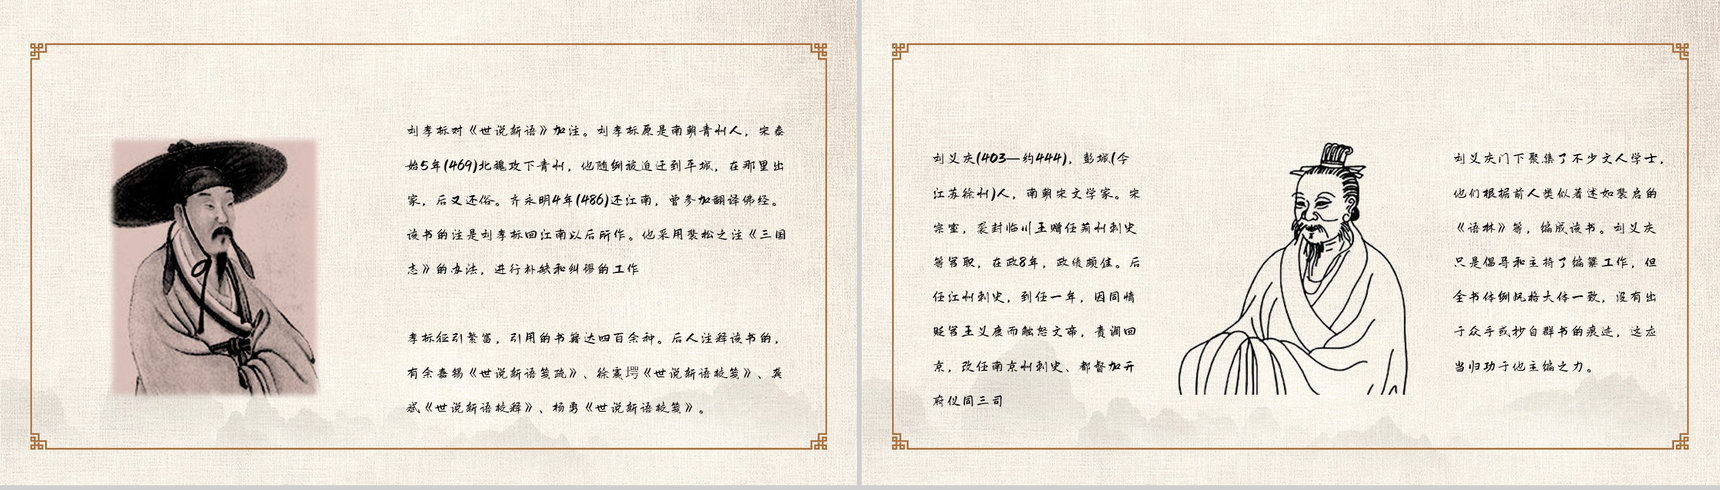 刘孝标对《世说新语》加注。刘孝标原是南朝青州人，宋泰
始5年(469)北魏攻下青州，他随例被迫迁到平城，在那里出
家，后又还俗。齐永明4年(486)还江南，曾参加翻译佛经。
该书的注是刘孝标回江南以后所作。他采用裴松之注《三国
志》的办法，进行补缺和纠谬的工作
孝标征引繁富，引用的书籍达四百余种。后人注释该书的，
有余嘉锡《世说新语笺疏》、徐震堮《世说新语校笺》、龚
斌《世说新语校释》、杨勇《世说新语校笺》。
刘义庆(403—约444)，彭城(今
江苏徐州)人，南朝宋文学家。宋
宗室，袭封临川王赠任荊州刺史
等官职，在政8年，政绩颇佳。后
任江州刺史，到任一年，因同情
贬官王义康而触怒文帝，责调回
京，改任南京州刺史、都督加开
府仪同三司
刘义庆门下聚集了不少文人学士，
他们根据前人类似著述如裴启的
《语林》等，编成该书。刘义庆
只是倡导和主持了编纂工作，但
全书体例风格大体一致，没有出
于众手或抄自群书的痕迹，这应
当归功于他主编之力。